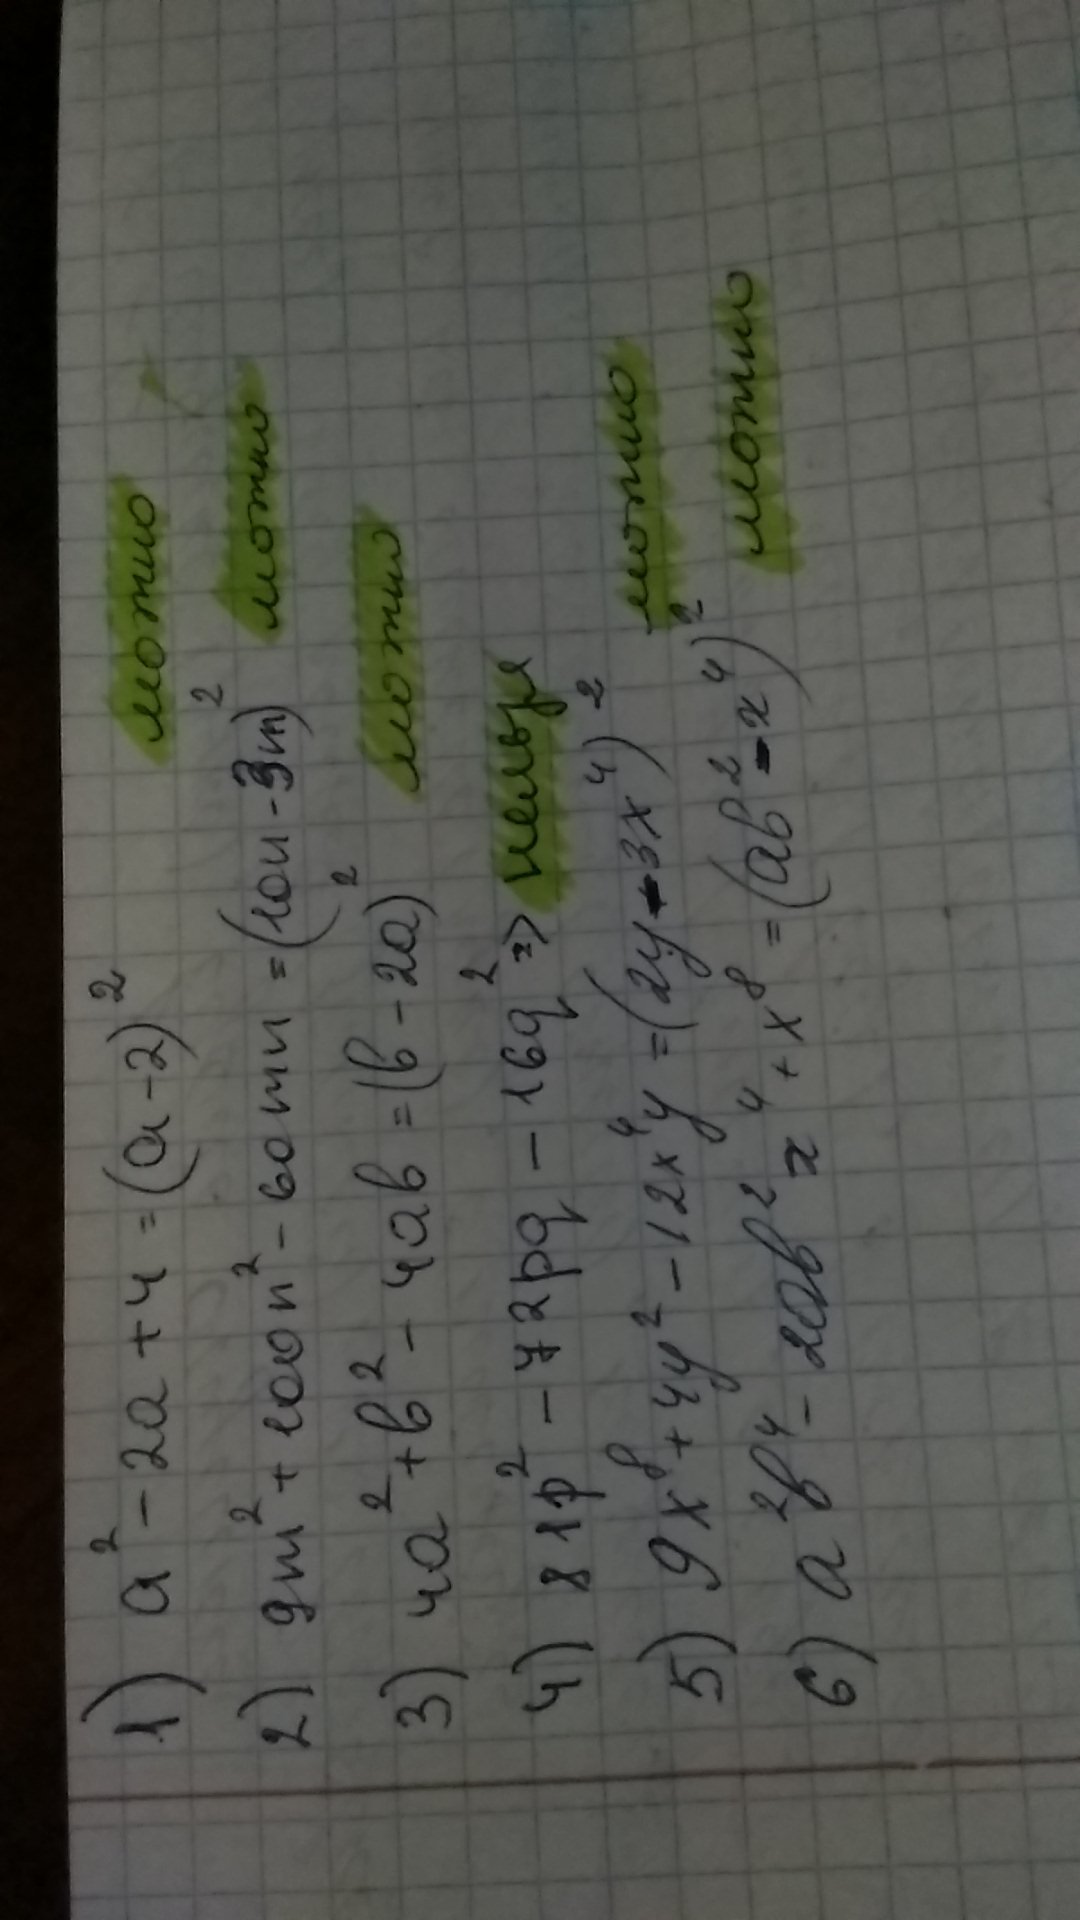 1) a² - 2a + 4 = (a - 2)² можно
2) 9m² + 100n² - 60mn = (10n - 3m)² можно
3) 4a² + b² - 4ab = (b - 2a)² можно
4) 81p² - 72pq - 16q² => нельзя
5) 9x⁸ + 4y² - 12x⁴y = (2y - 3x⁴)² можно
6) a²b⁴ - 2ab² x⁴ + x⁸ = (ab² - x⁴)² можно